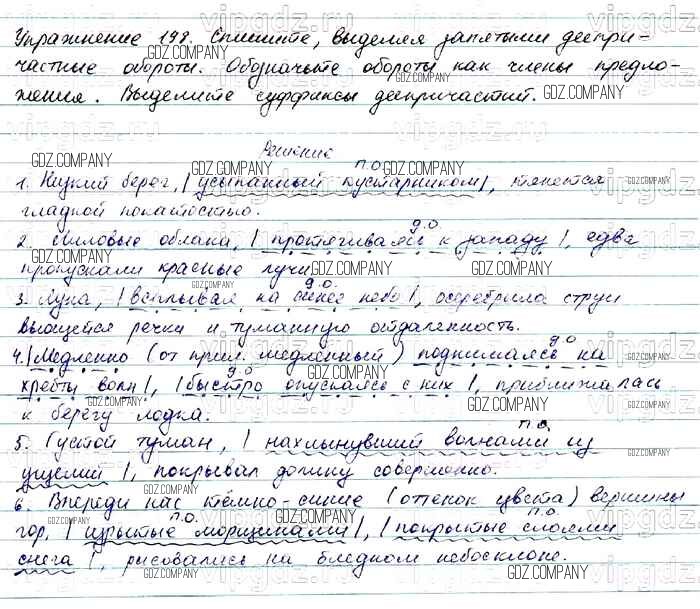 Упражнение 198. Спишите, выделяя запятыми деепри-
частные обороты. Обозначьте обороты как члены предло-
жения. Выделите суффиксы деепричастий.
Решение
п.о.
1. Низкий берег, | усыпанный кустарником |, тянется
гладкой покатостью.
д.о
2. Лиловые облака, | протягиваясь к западу |, едва
пропускали красные лучи
д.о.
3. Луна, | всплывая на синее небо |, осеребрила струи
вьющейся речки и туманную отдаленность.
д.о
4. | Медленно (от прил. медленный) поднимаясь на
д.о
хребты волн |, | быстро опускаясь с них |, приближалась
к берегу лодка.
п.о.
5. Густой туман, | нахлынувший волнами из
ущелий |, покрывал долину совершенно.
6. Впереди нас тёмно-синие (оттенок цвета) вершины
п.о. п.о.
гор, | изрытые морщинами |, | покрытые слоями
снега |, рисовались на бледном небосклоне.
GDZ.COMPANY
vipgdz.ru